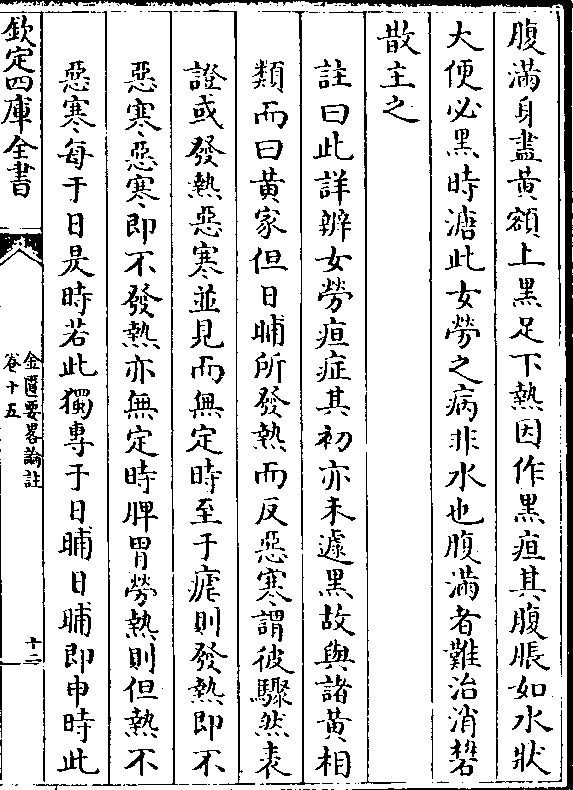 腹滿身盡黃額上黑足下熱因作黑疸其腹脹如水狀
大便必黑時溏此女勞之病非水也腹滿者難治消礬
散主之
註曰此詳辨女勞疸症其初亦未遽黑故與諸黃相
類而曰黃家但日晡所發熱而反惡寒謂彼驟然表
證或發熱惡寒並見而無定時至于瘧則發熱即不
惡寒惡寒即不發熱亦無定時脾胃勞熱則但熱不
惡寒每于日是時若此獨專于日晡日晡即申時此
欽定四庫全書
金匱要畧論註
卷十五
十二